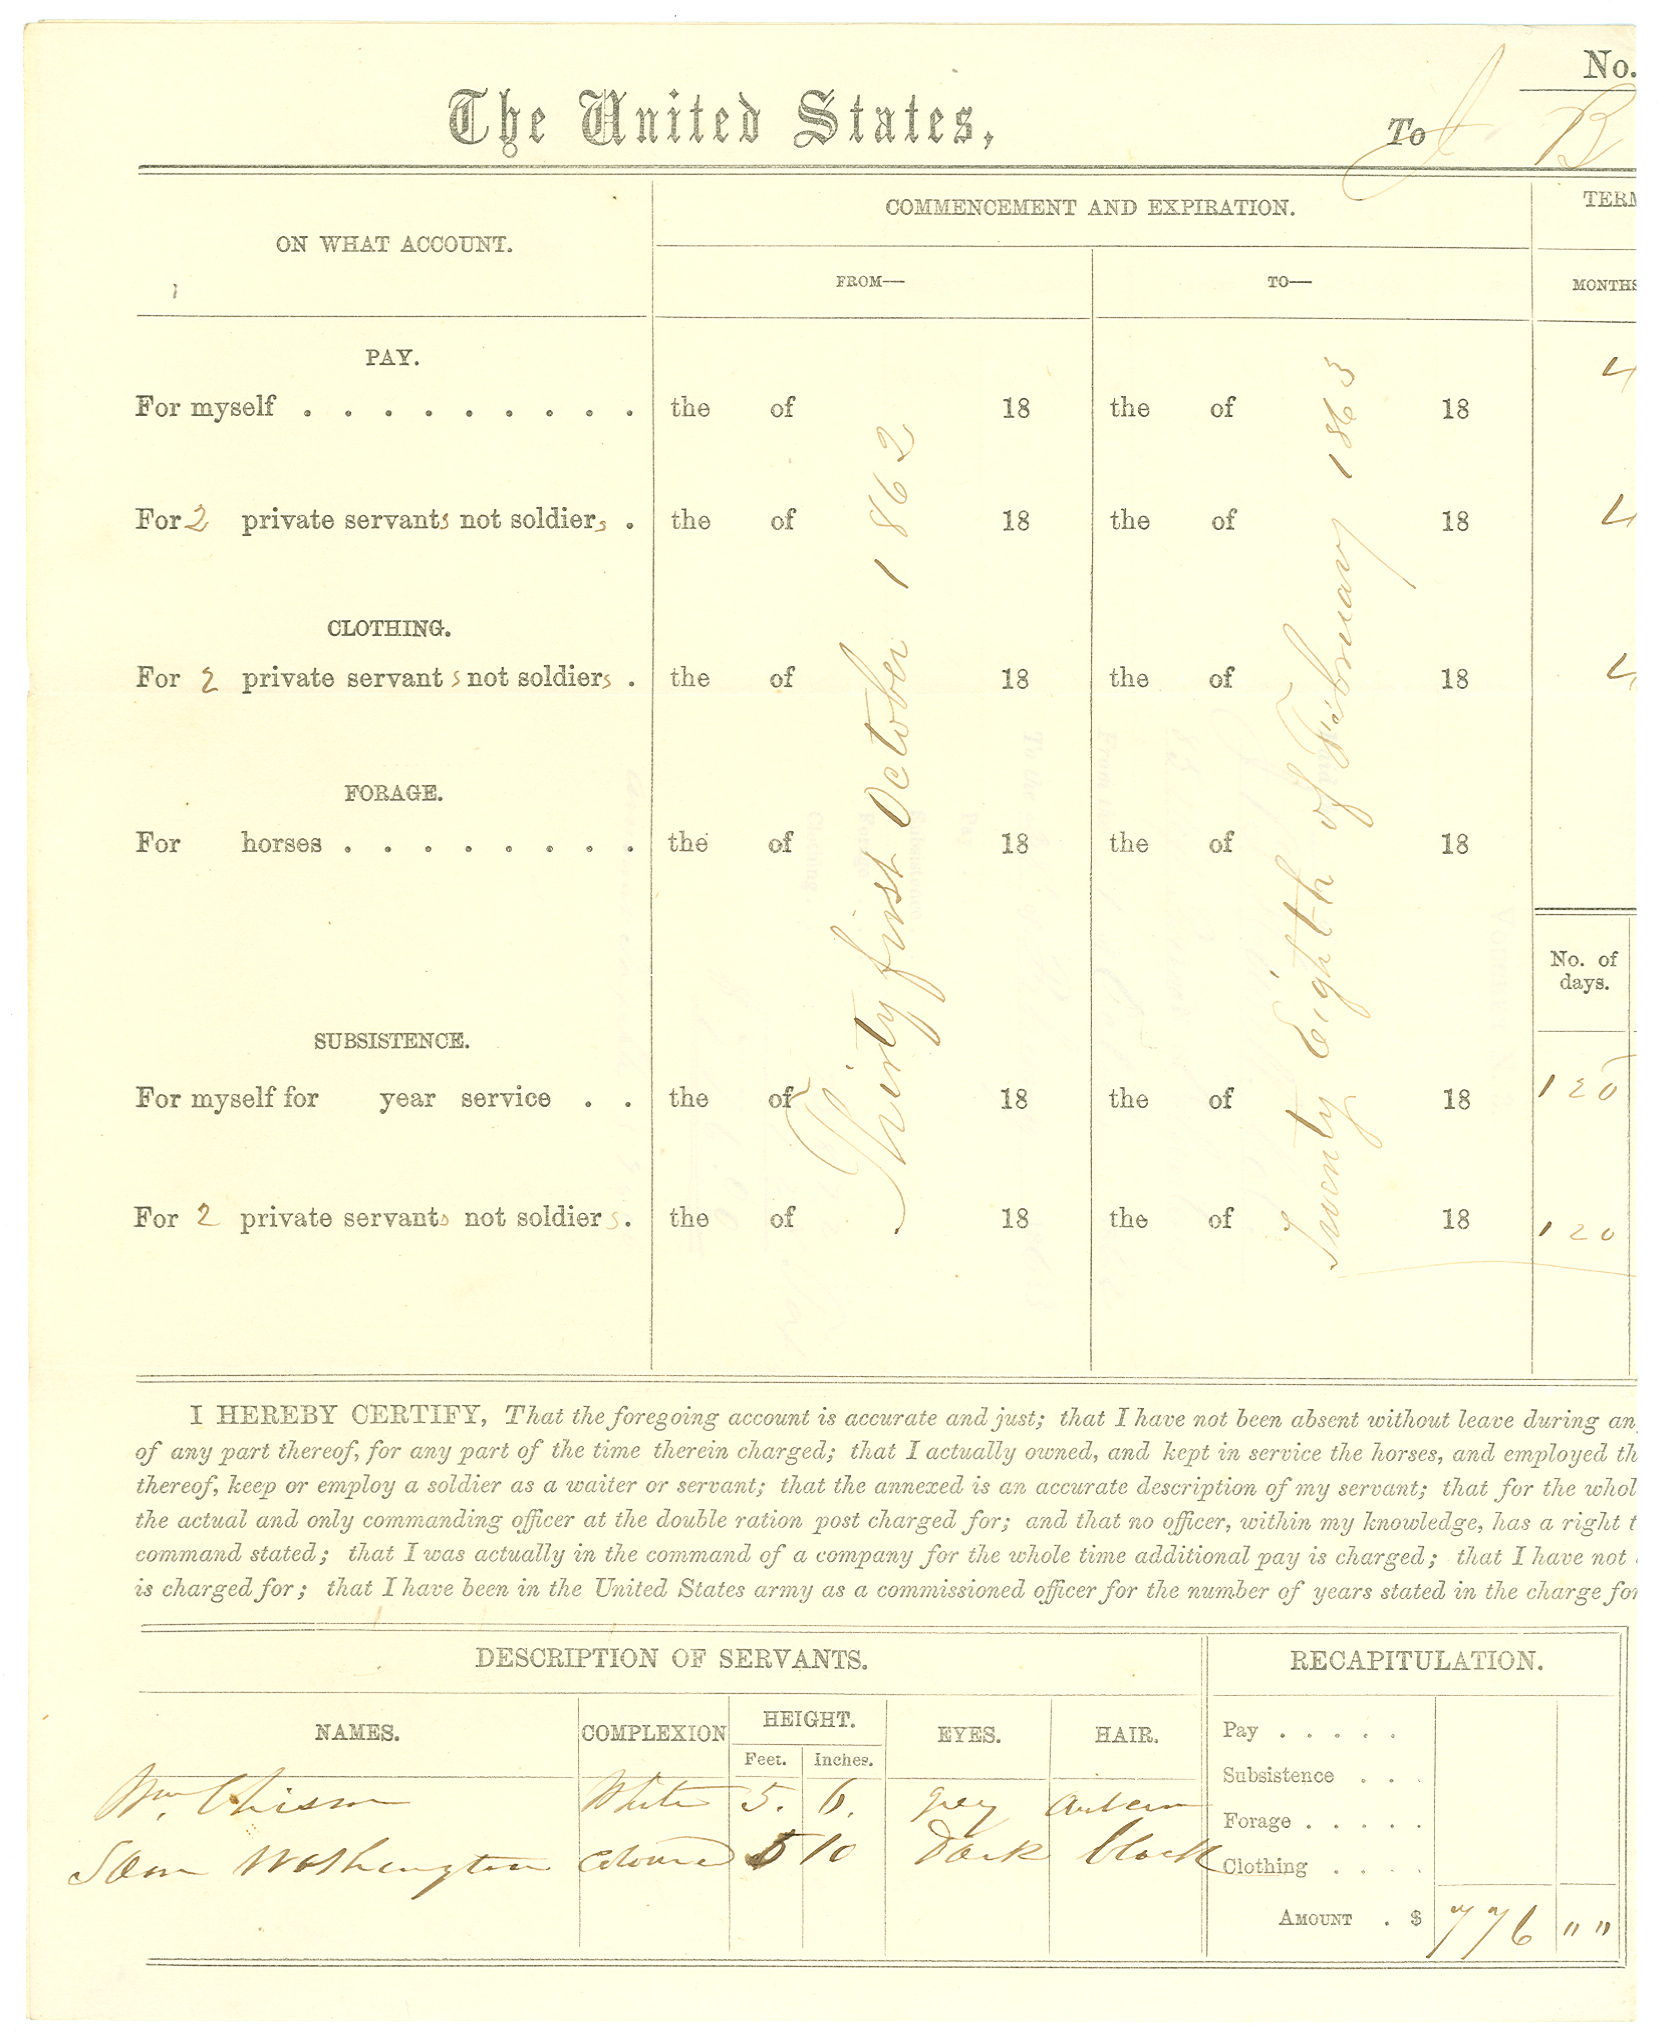 No.
The United States,
To J B
ON WHAT ACCOUNT.
COMMENCEMENT AND EXPIRATION.
TERM
FROM—
TO—
MONTHS
PAY.
For myself . . . . . . . . . the of 18 the of 18 4
For 2 private servants not soldiers . the of 18 the of 18 4
CLOTHING.
For 2 private servants not soldiers . the of 18 the of 18 4
FORAGE.
For horses . . . . . . . . the of 18 the of 18
Thirty first October 1862
Twenty Eighth of February 1863
No. of
days.
SUBSISTENCE.
For myself for year service . . the of 18 the of 18 120
For 2 private servants not soldiers. the of 18 the of 18 120
I HEREBY CERTIFY, That the foregoing account is accurate and just; that I have not been absent without leave during an
of any part thereof, for any part of the time therein charged; that I actually owned, and kept in service the horses, and employed th
thereof, keep or employ a soldier as a waiter or servant; that the annexed is an accurate description of my servant; that for the whol
the actual and only commanding officer at the double ration post charged for; and that no officer, within my knowledge, has a right t
command stated; that I was actually in the command of a company for the whole time additional pay is charged; that I have not
is charged for; that I have been in the United States army as a commissioned officer for the number of years stated in the charge for
DESCRIPTION OF SERVANTS.
RECAPITULATION.
NAMES. COMPLEXION HEIGHT. EYES. HAIR.
Feet. Inches.
Wm. Chism White 5. 6. grey Auburn
Sam Washington Coloured 5 10 Dark black
Pay . . . . .
Subsistence . . .
Forage . . . . .
Clothing . . . .
AMOUNT . $ 776 " "